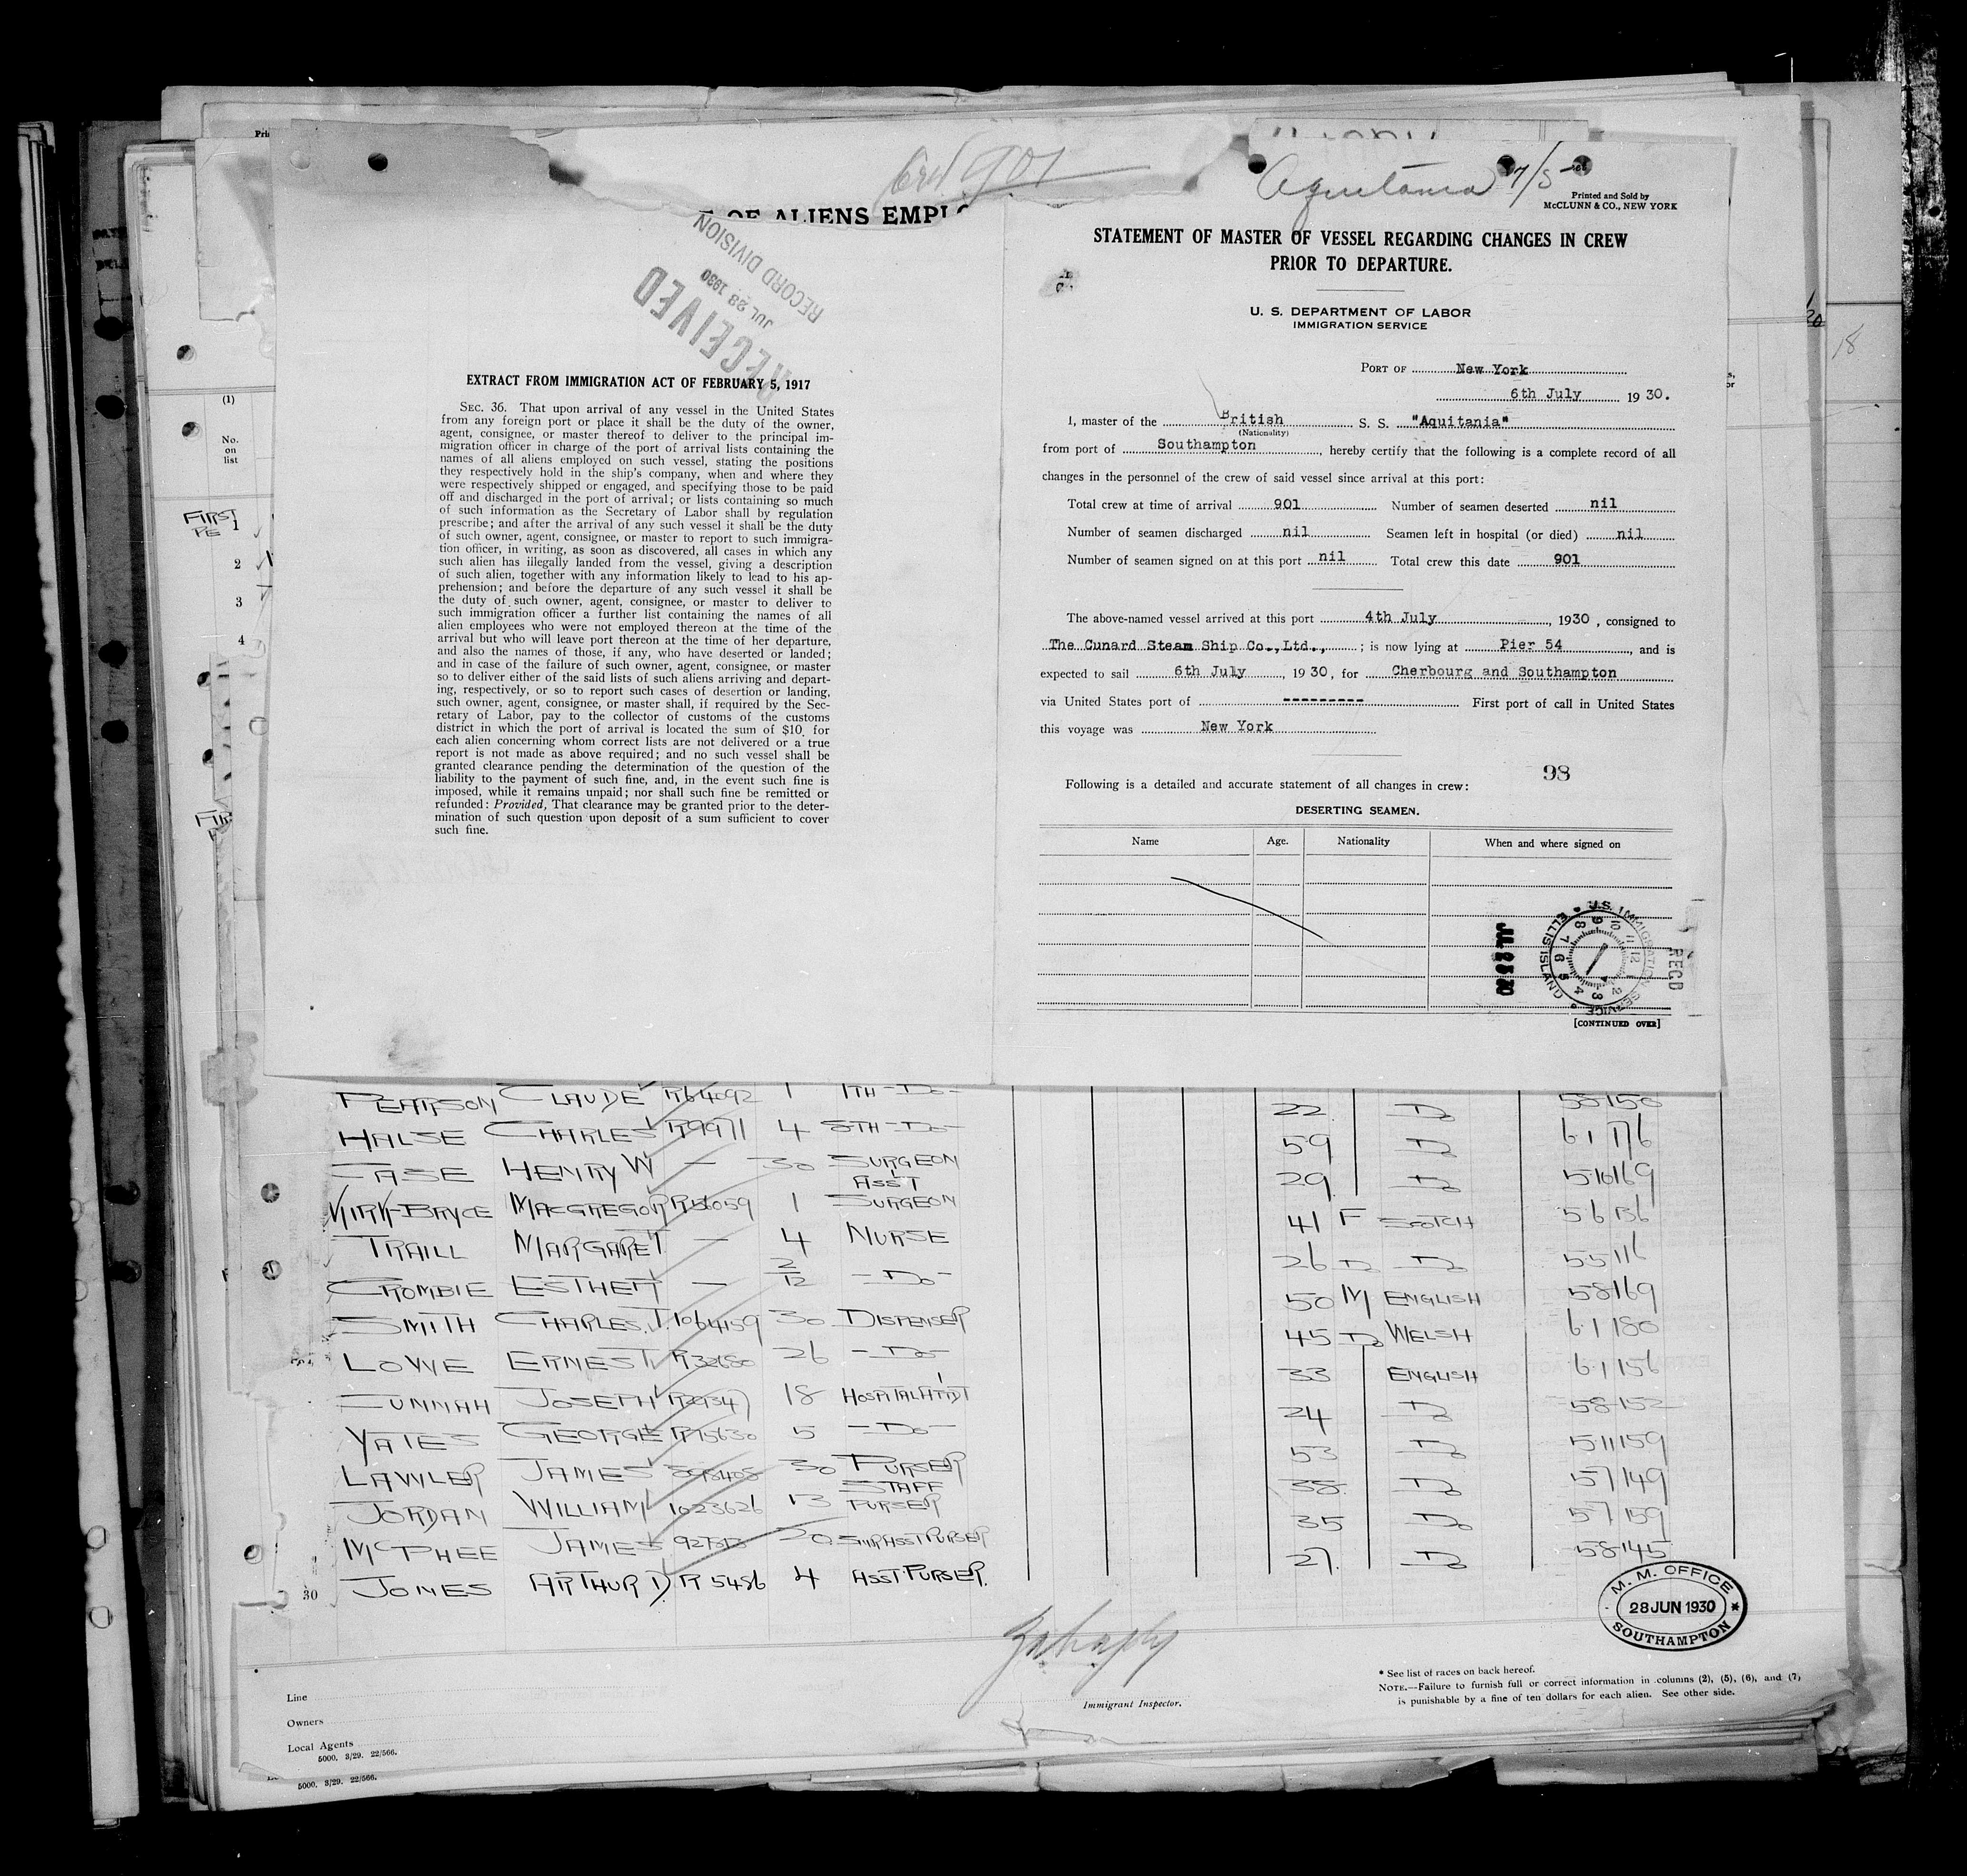 Ord 901
OF ALIENS EMPLO
RECEIVED
JUL 28 1930
RECORD DIVISION
EXTRACT FROM IMMIGRATION ACT OF FEBRUARY 5, 1917
SEC. 36. That upon arrival of any vessel in the United States
from any foreign port or place it shall be the duty of the owner,
agent, consignee, or master thereof to deliver to the principal im-
migration officer in charge of the port of arrival lists containing the
names of all aliens employed on such vessel, stating the positions
they respectively hold in the ship's company, when and where they
were respectively shipped or engaged, and specifying those to be paid
off and discharged in the port of arrival; or lists containing so much
of such information as the Secretary of Labor shall by regulation
prescribe; and after the arrival of any such vessel it shall be the duty
of such owner, agent, consignee, or master to report to such immigra-
tion officer, in writing, as soon as discovered, all cases in which any
such alien has illegally landed from the vessel, giving a description
of such alien, together with any information likely to lead to his ap-
prehension; and before the departure of any such vessel it shall be
the duty of such owner, agent, consignee, or master to deliver to
such immigration officer a further list containing the names of all
alien employees who were not employed thereon at the time of the
arrival but who will leave port thereon at the time of her departure,
and also the names of those, if any, who have deserted or landed;
and in case of the failure of such owner, agent, consignee, or master
so to deliver either of the said lists of such aliens arriving and depart-
ing, respectively, or so to report such cases of desertion or landing,
such owner, agent, consignee, or master shall, if required by the Sec-
retary of Labor, pay to the collector of customs of the customs
district in which the port of arrival is located the sum of $10 for
each alien concerning whom correct lists are not delivered or a true
report is not made as above required; and no such vessel shall be
granted clearance pending the determination of the question of the
liability to the payment of such fine, and, in the event such fine is
imposed, while it remains unpaid; nor shall such fine be remitted or
refunded: Provided, That clearance may be granted prior to the deter-
mination of such question upon deposit of a sum sufficient to cover
such fine.
Aquitania 7/5
Printed and Sold by
McCLUNN & CO., NEW YORK
STATEMENT OF MASTER OF VESSEL REGARDING CHANGES IN CREW
PRIOR TO DEPARTURE.
U. S. DEPARTMENT OF LABOR
IMMIGRATION SERVICE
PORT OF New York
6th July 1930.
I, master of the British S. S. "Aquitania"
(Nationality)
from port of Southampton, hereby certify that the following is a complete record of all
changes in the personnel of the crew of said vessel since arrival at this port:
Total crew at time of arrival 901 Number of seamen deserted nil
Number of seamen discharged nil Seamen left in hospital (or died) nil
Number of seamen signed on at this port nil Total crew this date 901
The above-named vessel arrived at this port 4th July, 1930, consigned to
The Cunard Steam Ship Co.,Ltd., ; is now lying at Pier 54, and is
expected to sail 6th July, 1930, for Cherbourg and Southampton
via United States port of --------- First port of call in United States
this voyage was New York
98
Following is a detailed and accurate statement of all changes in crew:
DESERTING SEAMEN.
Name Age. Nationality When and where signed on
U.S. IMMIGRATION SERVICE ELLIS ISLAND
REC'D
[CONTINUED OVER]
(1)
No.
on
list
FIRST
1
2
3
4
18
PEARSON CLAUDE R64092 1 7TH -DO- 22 DO 58 150
HALSE CHARLES R9971 4 8TH -DO- 59 DO 61 176
CASE HENRY W — 30 SURGEON 29 DO 510 169
KIRK-BRYCE MACGREGOR R56059 1 ASST SURGEON 41 F SCOTCH 56 136
TRAILL MARGARET — 4 NURSE 26 DO DO 55 116
CROMBIE ESTHER — 2/12 -DO- 50 M ENGLISH 58 169
SMITH CHARLES.T. 1064159 30 DISPENSER 45 DO WELSH 61 180
LOWE ERNEST R32680 26 -DO- 33 ENGLISH 61 156
CUNNAH JOSEPH 18 HOSPITAL ATT'DT 24 DO 58 152
YATES GEORGE R75630 5 -DO- 53 DO 511 159
LAWLER JAMES 30 PURSER 38 DO 57 149
JORDAN WILLIAM 1023626 13 STAFF PURSER 35 DO 57 159
McPHEE JAMES 20 SNR ASST PURSER 27. DO 58 145
30 JONES ARTHUR D. R 5486 4 ASST PURSER.
M. M. OFFICE
28 JUN 1930
SOUTHAMPTON
Immigrant Inspector.
* See list of races on back hereof.
NOTE.—Failure to furnish full or correct information in columns (2), (5), (6), and (7),
is punishable by a fine of ten dollars for each alien. See other side.
Line
Owners
Local Agents
5000. 3/29. 22/566.
5000. 3/29. 22/566.